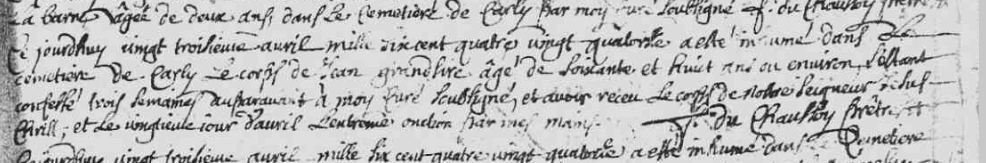 La barre âgée de deux ans, dans Le Cemetiere de Carly par moy curé soubsigné f. du Chaussoy prestre
Ce jourdhuy vingt troisieme avril mille six cent quatre vingt quatorze a esté inhumé dans Le
cemetiere de Carly Le corps de Jean grandsire âgé de soixante et huict ans ou environ, s'estant
confessé trois semaines auparavant à moy curé soubsigné, et avoir receu Le corps de nostre seigneur Jesus
Christ; et Le vingtieme jour d'avril L'extreme onction par mes mains. f. du Chaussoy prêtre
Ce jourdhuy vingt troisieme avril mille six cent quatre vingt quatorze a esté inhumé dans Cemetiere